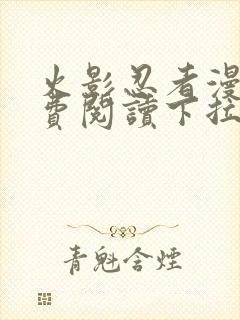 火影忍者漫
費閱讀下拉
青魁含煙